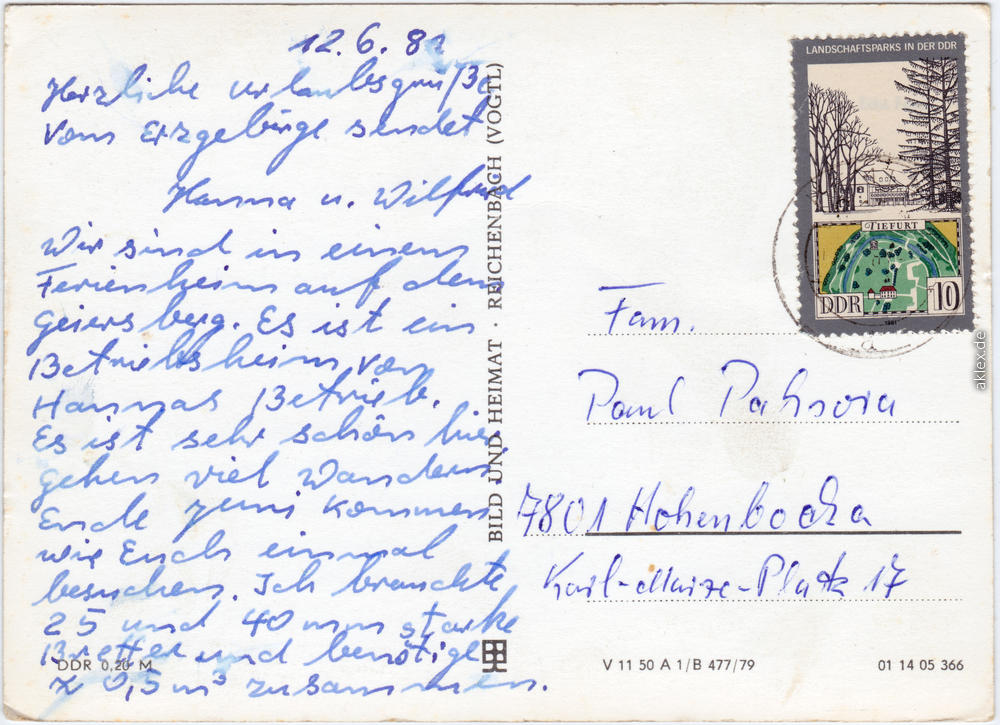 12.6.82
Herzliche Urlaubsgrüße
vom Erzgebirge sendet
Hanna u. Wilfried
Wir sind in einem
Ferienheim auf dem
Geiersberg. Es ist ein
Betriebsheim von
Hannas Betrieb.
Es ist sehr schön hier
gehen viel Wandern
Ende Juni kommen
wir Euch einmal
besuchen. Ich brauchte
25 und 40 mm starke
Bretter und benötige
0,5 m³ zusammen.
DDR 0,20 M
BILD UND HEIMAT · REICHENBACH (VOGTL)
LANDSCHAFTSPARKS IN DER DDR
TIEFURT
DDR 10
1981
Fam.
Paul
7801 Hohenbocka
Karl-Marx-Platz 17
V 11 50 A 1/B 477/79
01 14 05 366
aklex.de